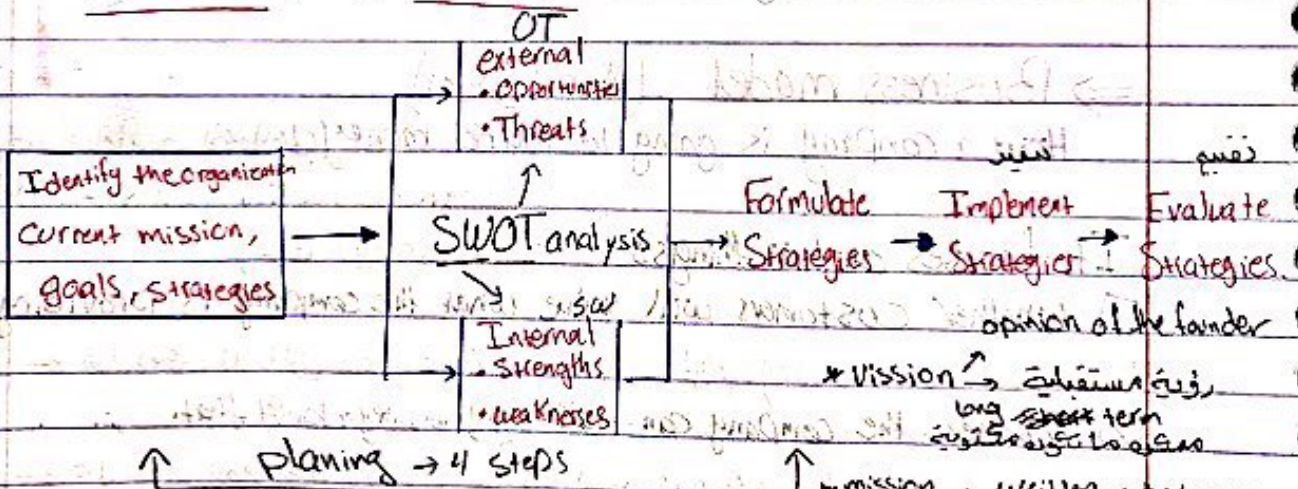 OT
external
• opportunities
• Threats
Identify the organization
current mission,
goals, strategies
SWOT analysis
SW
Internal
• strengths
• weaknesses
Formulate
Strategies
تنفيذ
Implement
Strategies
تقييم
Evaluate
Strategies.
opinion of the founder
* Vission → رؤية مستقبلية
long short term
planing → 4 steps
mission
written